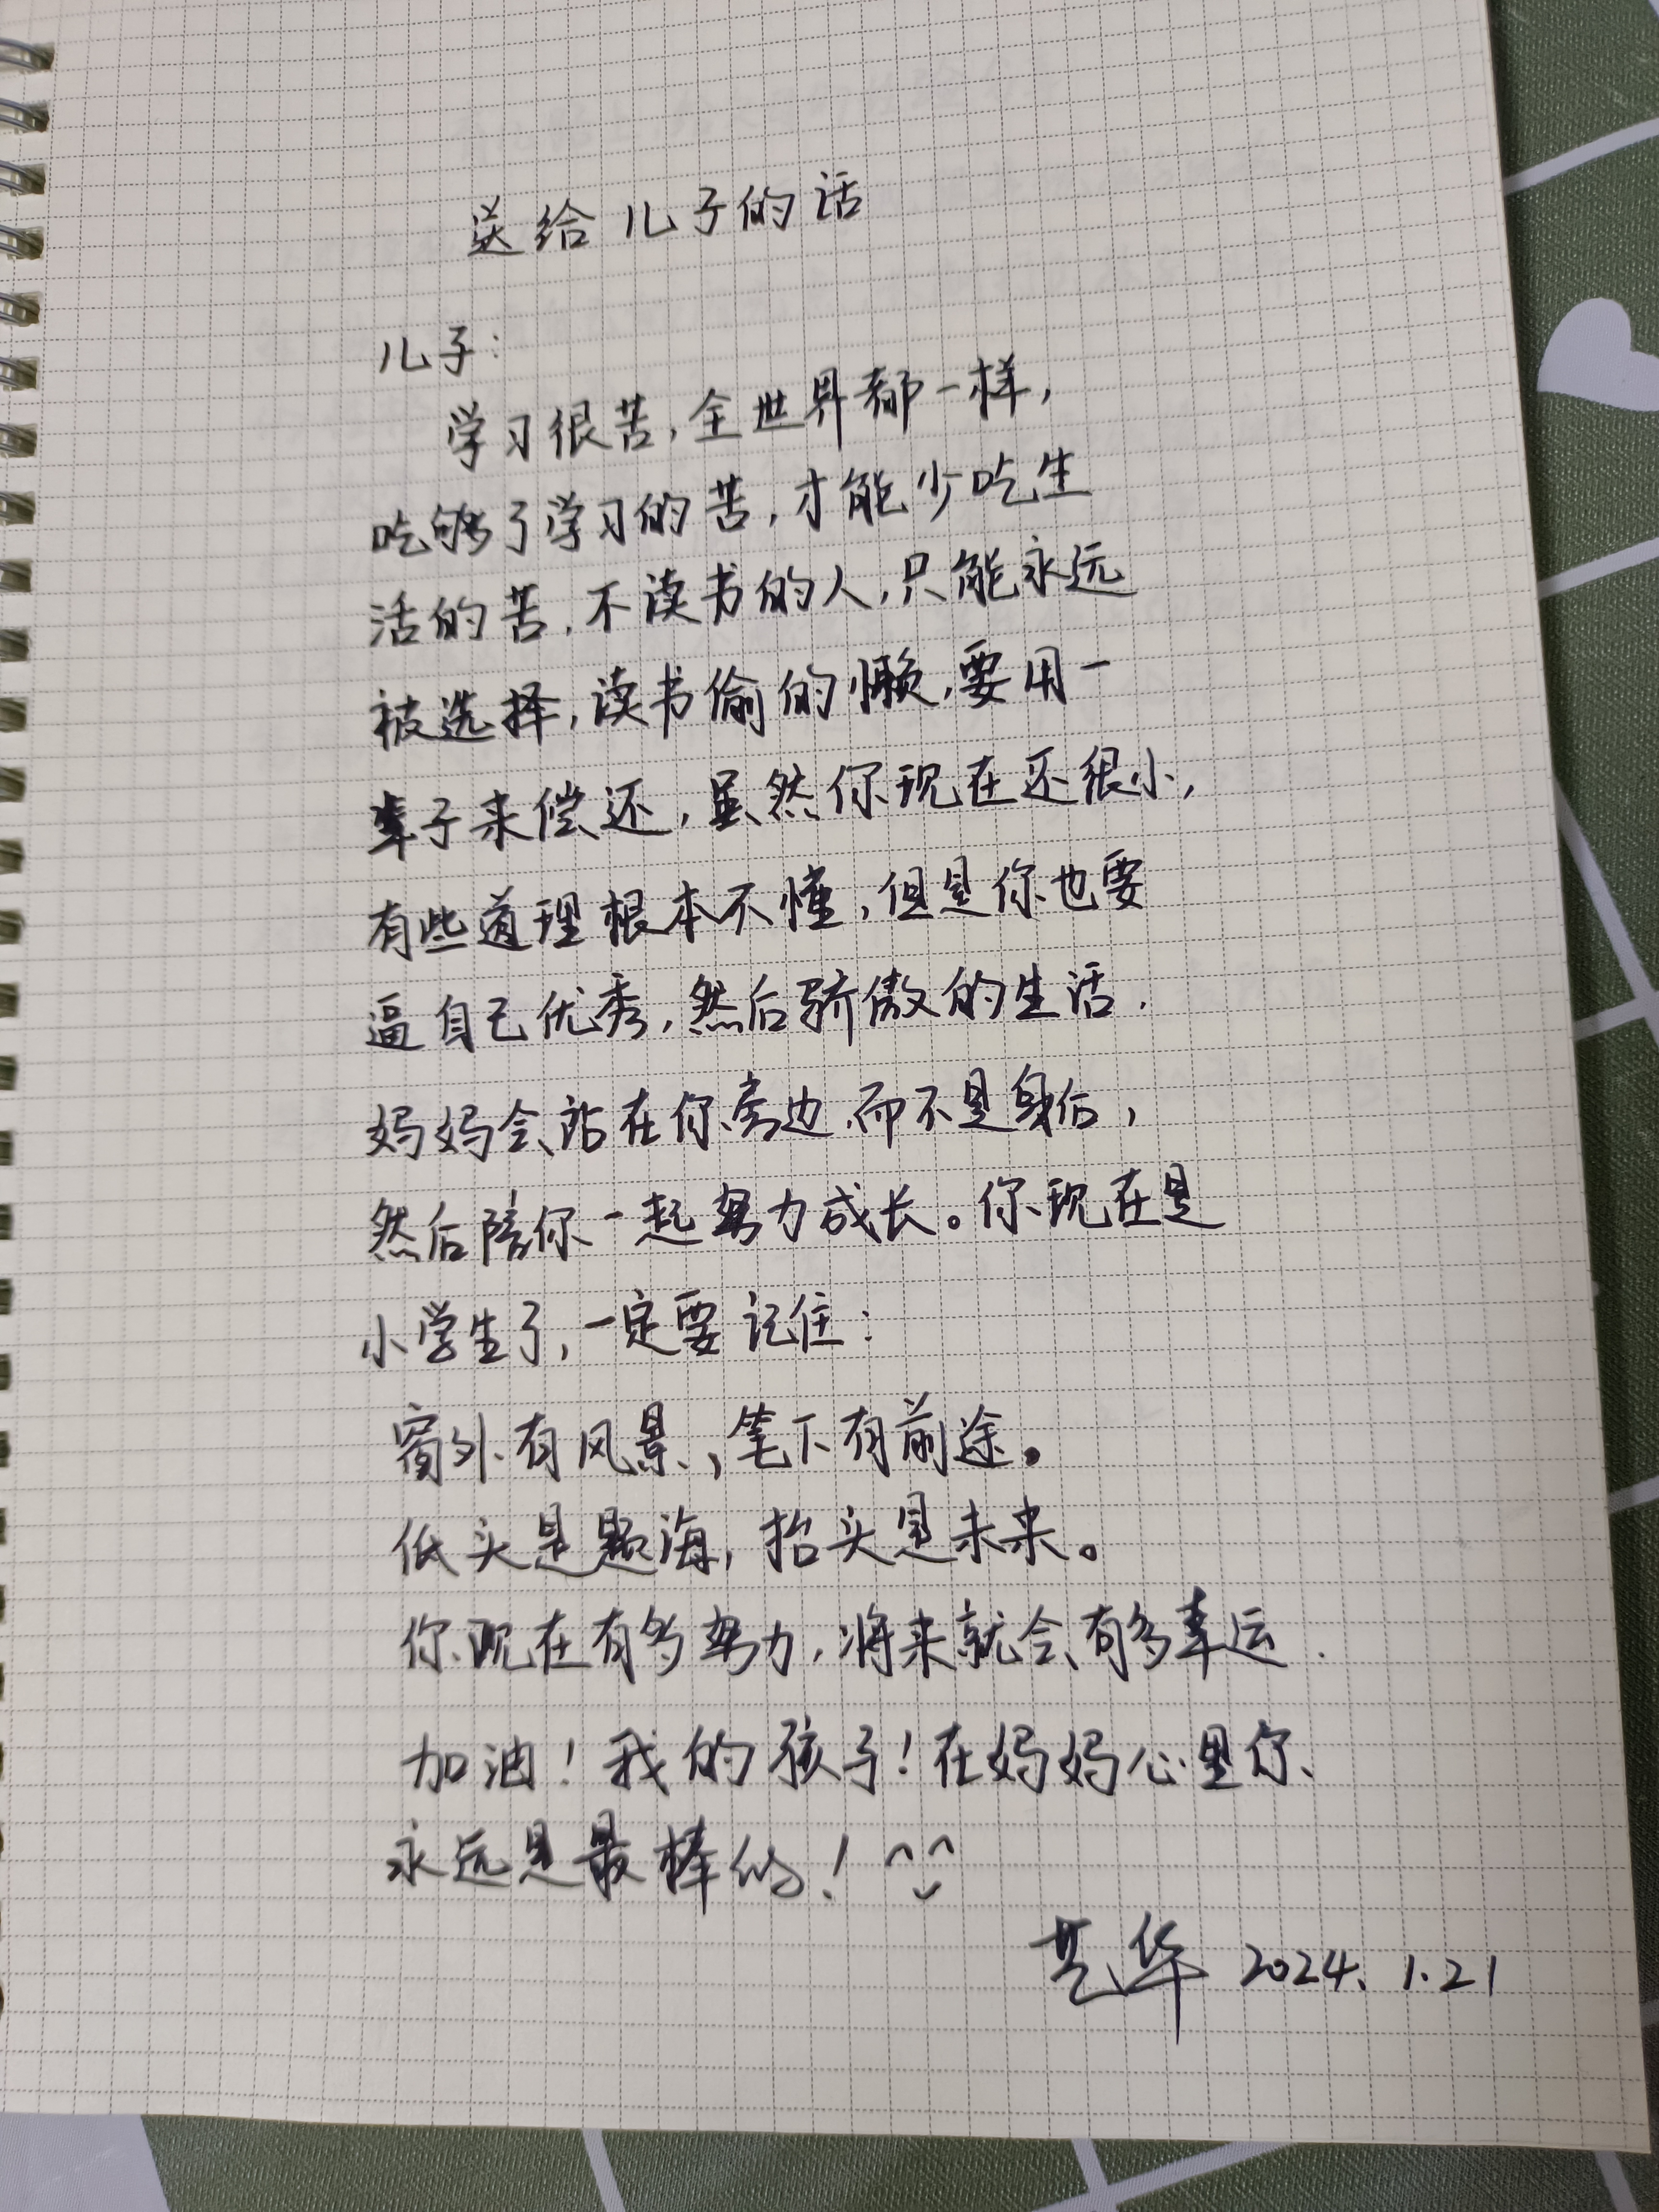 送给儿子的话
儿子:
学习很苦,全世界都一样,
吃够了学习的苦,才能少吃生
活的苦.不读书的人,只能永远
被选择,读书偷的懒,要用一
辈子来偿还,虽然你现在还很小,
有些道理根本不懂,但是你也要
逼自己优秀,然后骄傲的生活.
妈妈会站在你旁边.而不是身后,
然后陪你一起努力成长。你现在是
小学生了,一定要记住:
窗外有风景,笔下有前途。
低头是题海,抬头是未来。
你现在有多努力,将来就会有多幸运.
加油!我的孩子!在妈妈心里你
永远是最棒的!^_^
华 2024.1.21